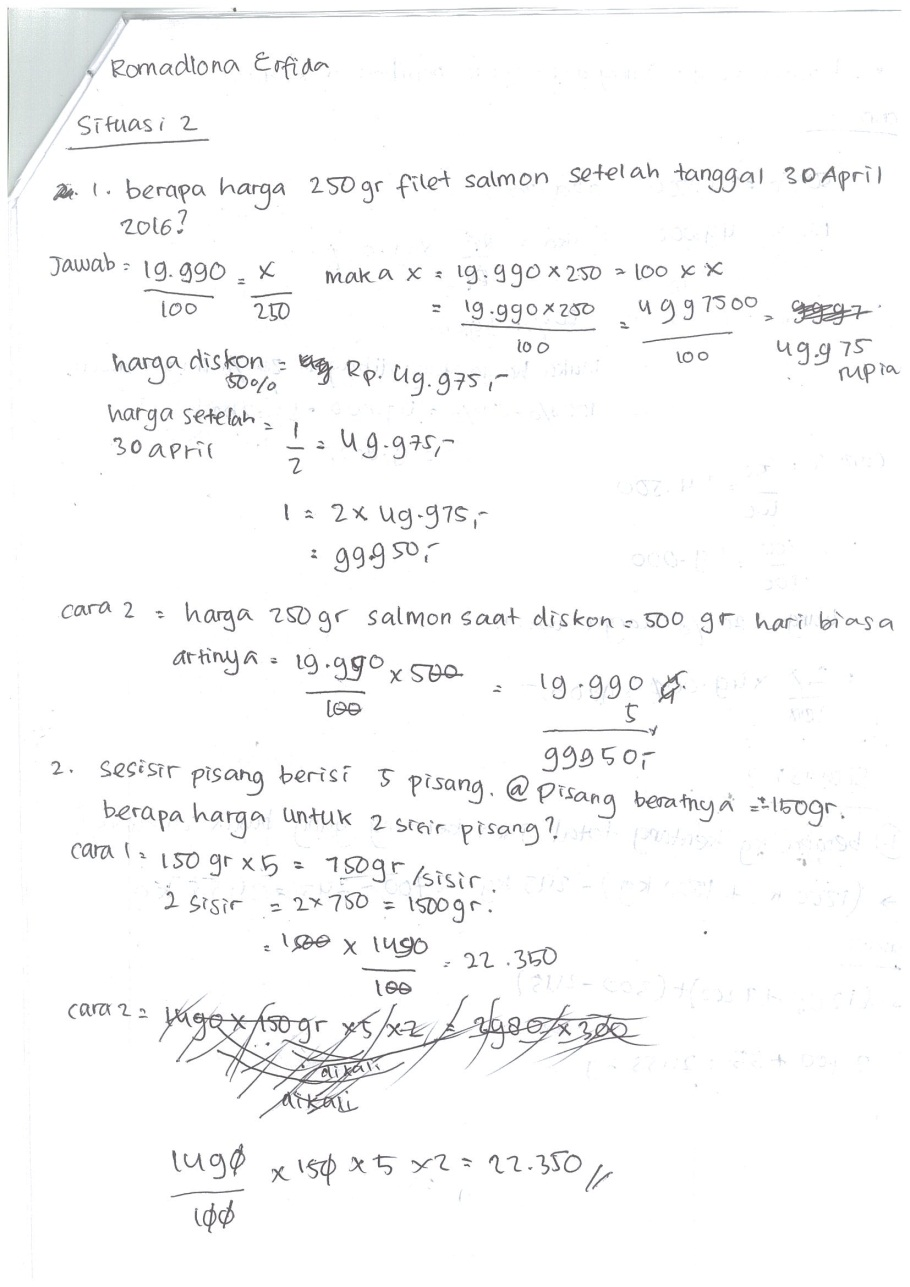 Romadlona Erfida
Situasi 2
1. berapa harga 250 gr filet salmon setelah tanggal 30 April
2016?
Jawab = 19.990/100 = x/250 maka x = 19.990 x 250 = 100 x x
= 19.990 x 250/100 = 4997500/100 = 49.975 rupia
harga diskon 50% = Rp. 49.975,-
harga setelah 30 april = 1/2 = 49.975,-
1 = 2x 49.975,-
= 99950,-
cara 2 = harga 250 gr salmon saat diskon = 500 gr hari biasa
artinya = 19.990/100 x 500 = 19.990
5 x
99950,-
2. Sesisir pisang berisi 5 pisang. @ pisang beratnya = ±150gr.
berapa harga untuk 2 sisir pisang?
cara 1 = 150 gr x 5 = 750gr /sisir
2 sisir = 2x 750 = 1500gr.
= 1500 x 1490/100 = 22.350
cara 2 = 1490 x 150 gr x5 x2 = 2980 x 300
dikali
dikali
1490/100 x 150 x 5 x2 = 22.350 //